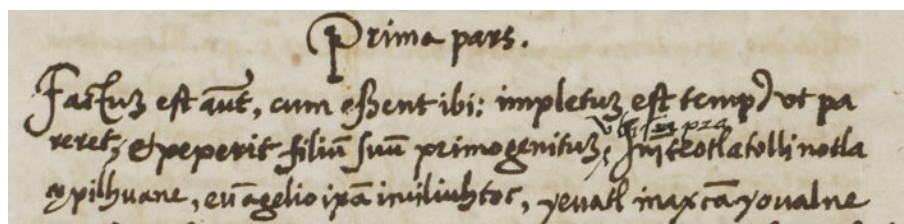 Prima pars.
Factuʒ est aūt, cum eßent ibi: impletuʒ est temp⁹ vt pa
vbi supra
reret, et peperit filiū suū primogenituʒ, Jn teotlatolli notla
çopilhuane, euāgelio ipā icuiliuhtoc, yeuatl in axcā youalne